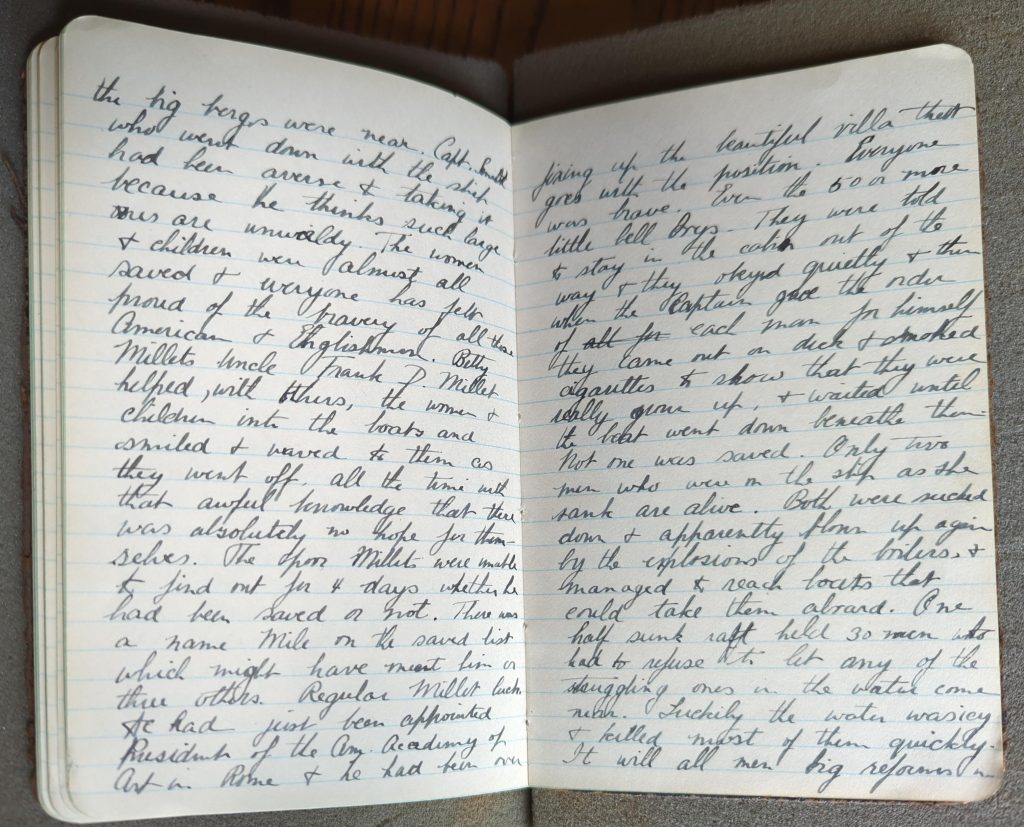 the big bergs were near. Capt. Smith
who went down with the ship
had been averse & taking it
because he thinks such large
ones are unwieldy. The women
& children were almost all
saved & everyone has felt
proud of the bravery of all those
American & Englishmen. Betty
Millets Uncle Frank D. Millet
helped, with others, the women &
children into the boats and
smiled & waved to them as
they went off, all the time with
that awful knowledge that there
was absolutely no hope for them-
selves. The poor Millets were unable
to find out for 4 days whether he
had been saved or not. There was
a name Mile on the saved list
which might have meant him or
three others. Regular Millet luck.
He had just been appointed
President of the Am. Academy of
Art in Rome & he had been over
fixing up the beautiful villa that
goes with the position. Everyone
was brave. Even the 50 or more
little bell boys. They were told
to stay in the cabin out of the
way & they obeyed quietly & then
when the Captain gave the order
of all for each man for himself
they came out on deck & smoked
cigarettes to show that they were
really grown up, & waited until
the boat went down beneathe them.
Not one was saved. Only two
men who were on the ship as she
sank are alive. Both were sucked
down & apparently blown up again
by the explosions of the boilers, &
managed to reach boats that
could take them aboard. One
half sunk raft held 30 men who
had to refuse to let any of the
struggling ones in the water come
near. Luckily the water was icy
& killed most of them quickly.
It will all mean big reforms in